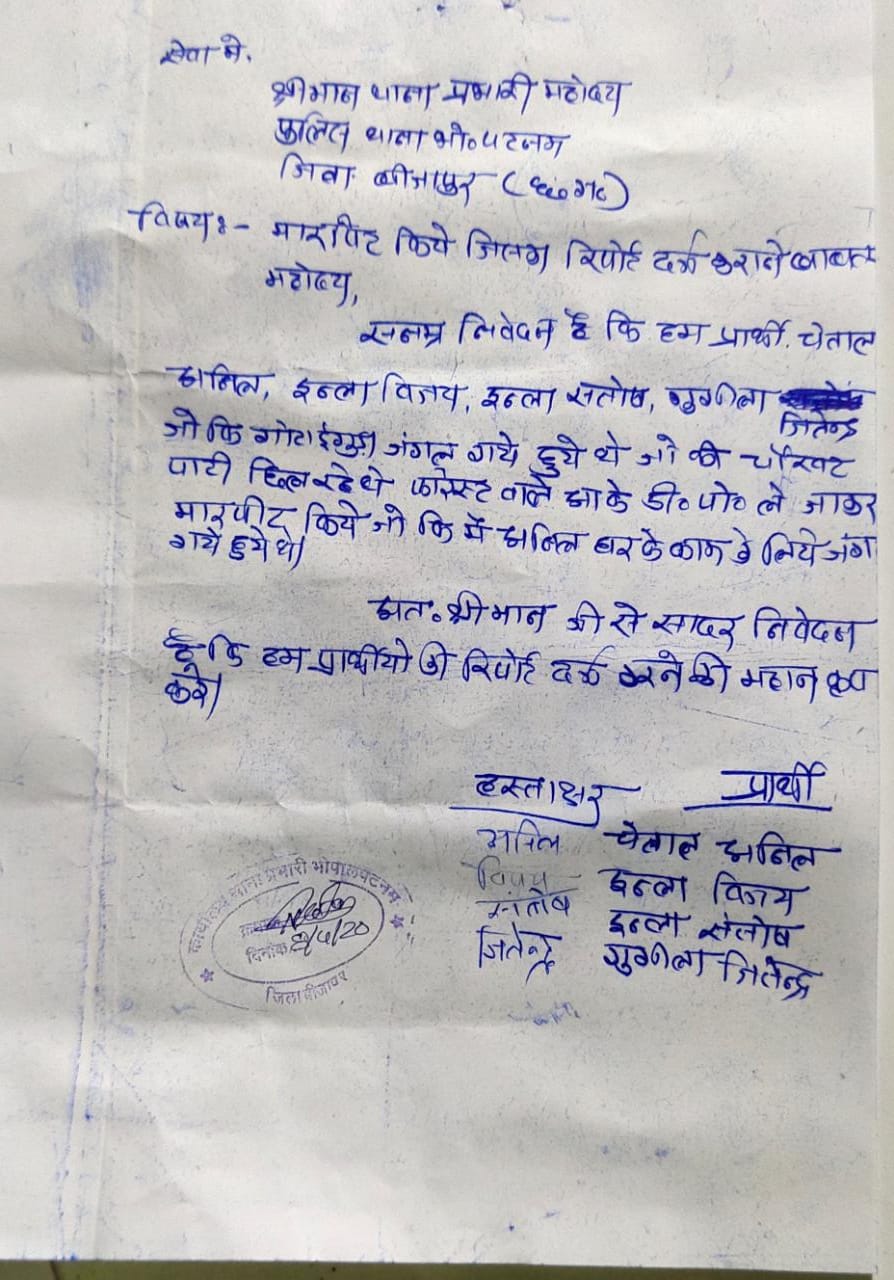 सेवा में.
श्रीमान थाना प्रभारी महोदय
पुलिस थाना भो०पटनम
जिला बीजापुर (छ०ग०)
विषय:- मारपिट किये जिसका रिपोर्ट दर्ज कराने बाबत
महोदय,
सनम्र निवेदन है कि हम प्रार्थी. चेलाल
अनिल, इन्ला विजय, इन्ला संतोष,
जितेन्द्र
जो कि गोटाईगुड़ा जंगल गये हुये थे जो की
पाटी छिल रहे थे फारेस्ट वाले आके डी० पो० ले जाकर
मारपीट किये जो कि में अनिल घर के काम के लिये जंग
गये हुये थे।
अत. श्रीमान जी से सादर निवेदन
है कि हम प्रार्थीयो की रिपोर्ट दर्ज करने की महान कृप
करे।
हस्ताक्षर प्रार्थी
अनिल चेलाल अनिल
विजय इन्ला विजय
संतोष इन्ला संतोष
जितेन्द्र जितेन्द्र
कार्यालय थाना प्रभारी भोपालपटनम
दिनांक
जिला बीजापुर